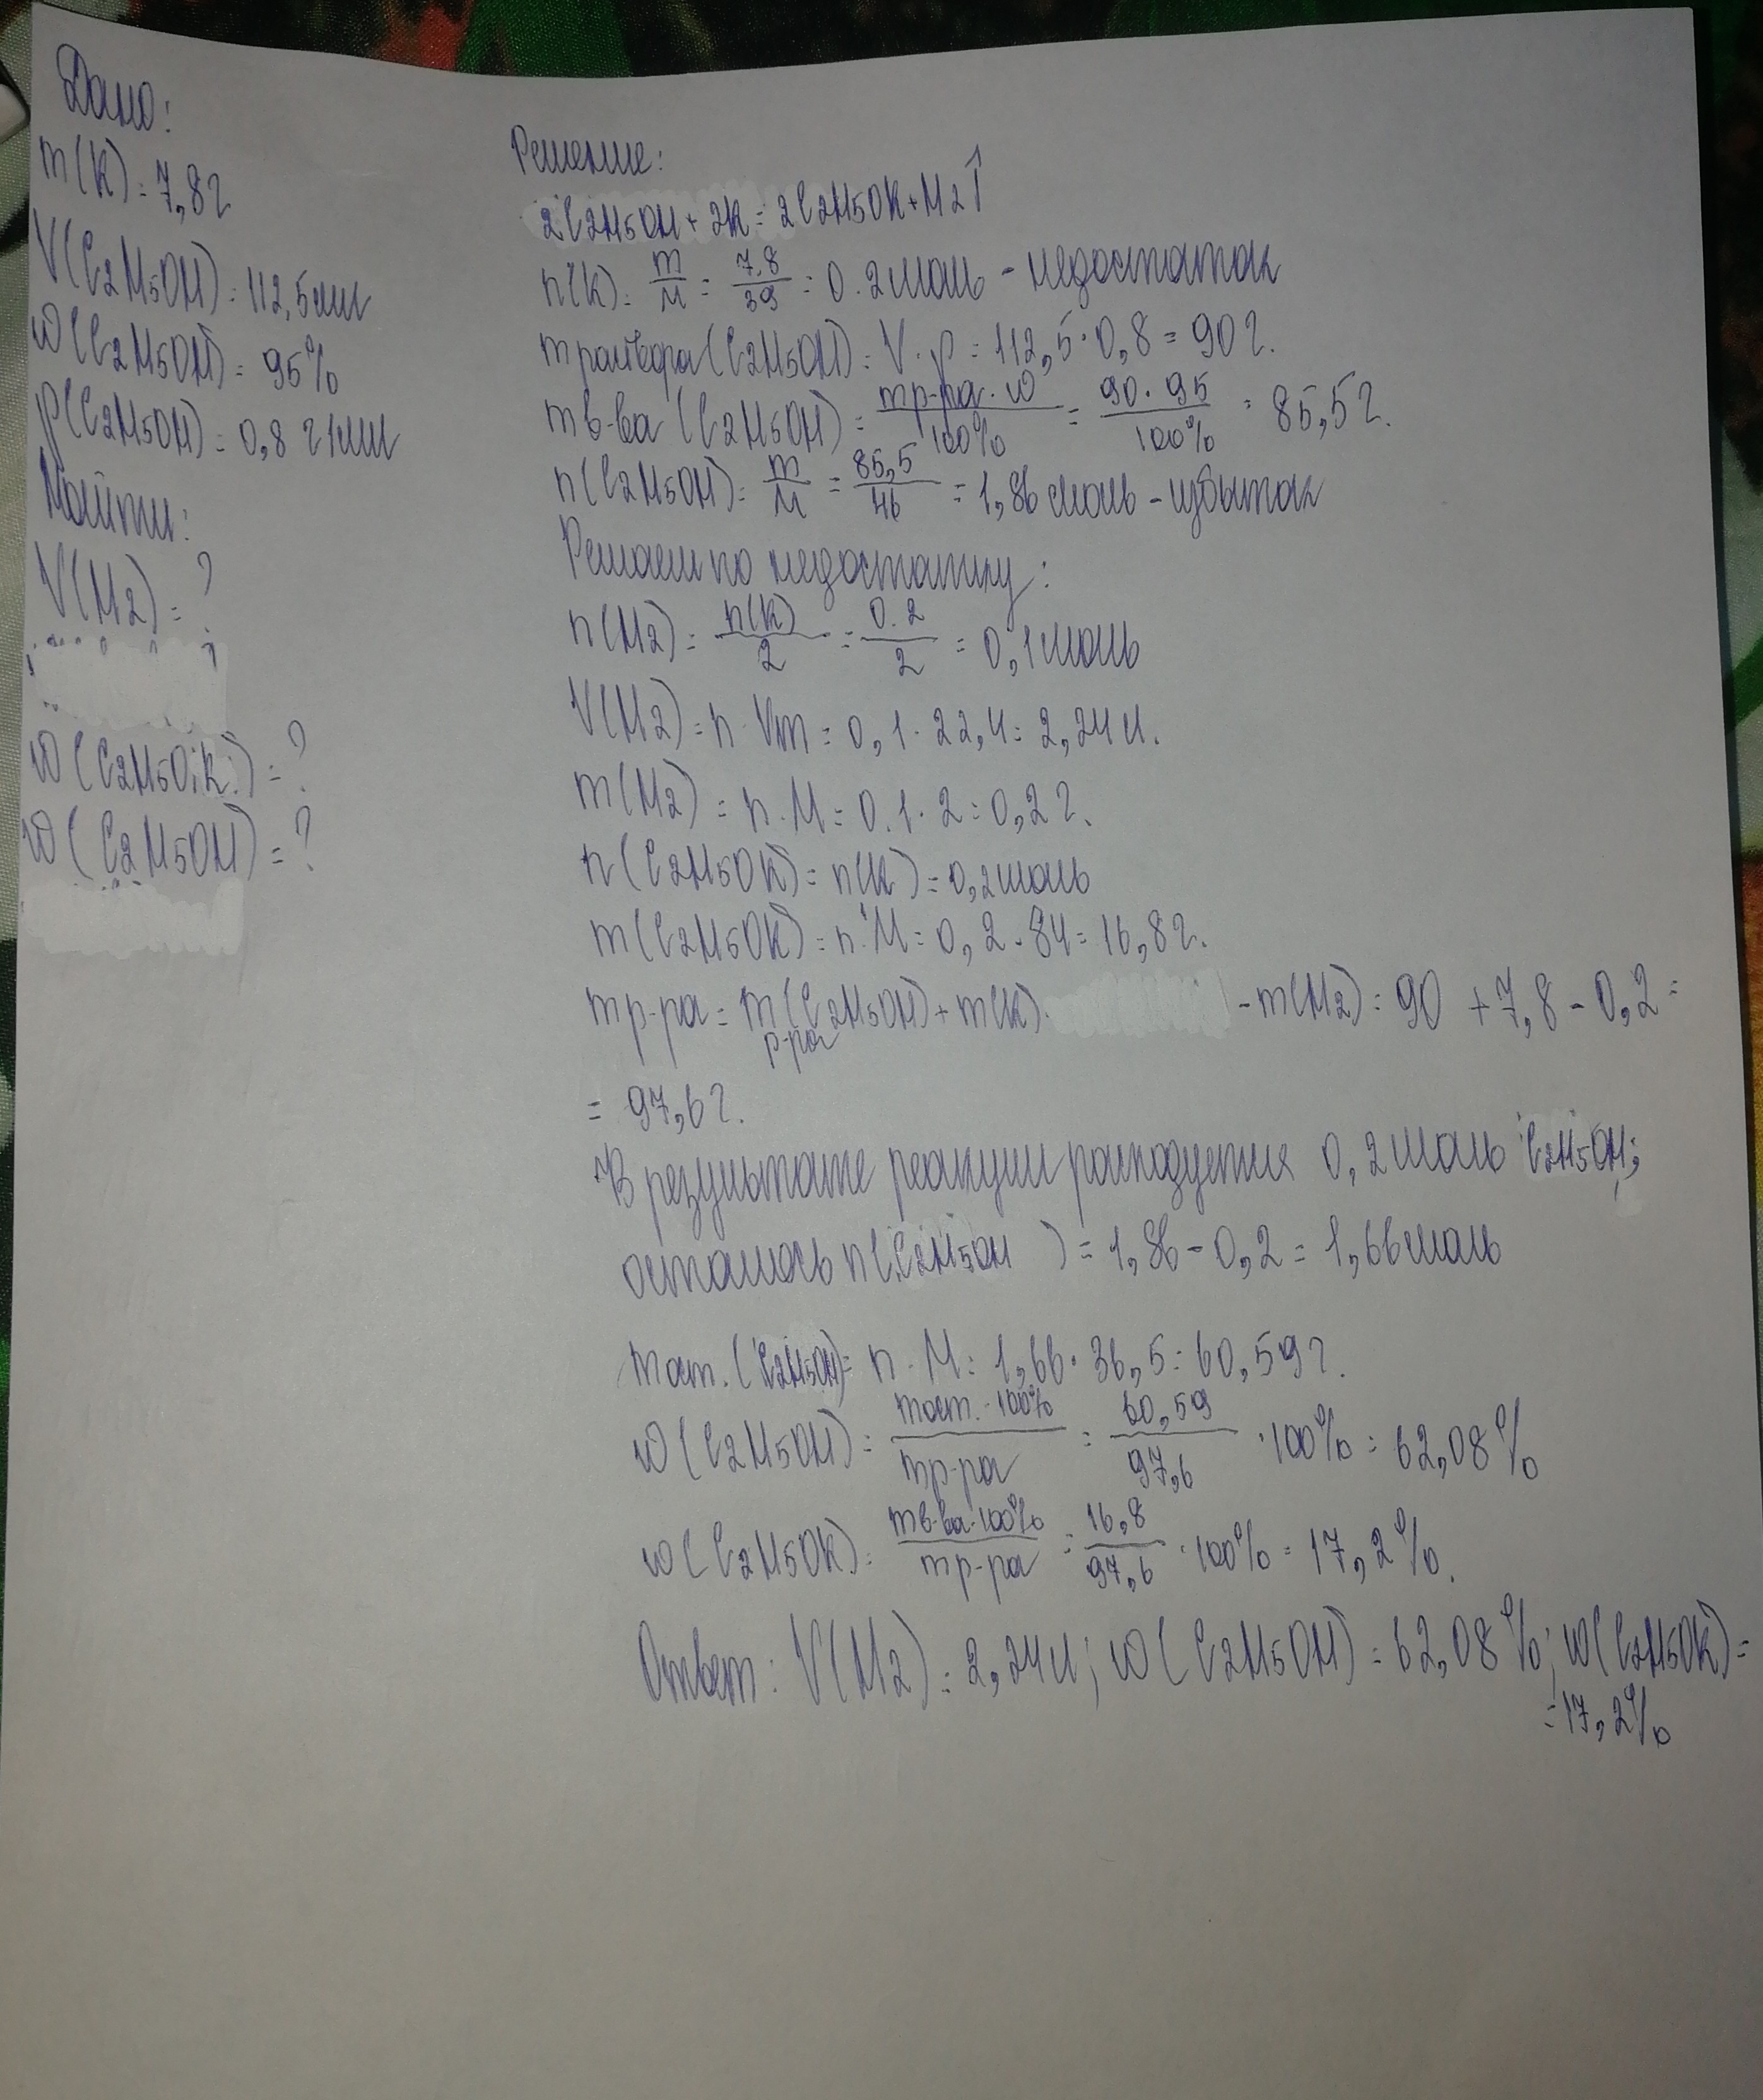 Дано:
m(K) = 7,8г
V(C2H5OH) = 112,5мл
ω(C2H5OH) = 95%
ρ(C2H5OH) = 0,8 г/мл
Найти:
V(H2) = ?
ω(C2H5OK) = ?
ω(C2H5OH) = ?
Решение:
2C2H5OH + 2K = 2C2H5OK + H2↑
n(K) = m/M = 7,8/39 = 0.2моль - недостаток
mраствора(C2H5OH) = V · ρ = 112,5 · 0,8 = 90г.
mв-ва (C2H5OH) = mр-ра · ω/100% = 90 · 95/100% = 85,5г.
n(C2H5OH) = m/M = 85,5/46 = 1,86моль - избыток
Решаем по недостатку:
n(H2) = n(K)/2 = 0.2/2 = 0,1моль
V(H2) = n · Vm = 0,1 · 22,4 = 2,24л.
m(H2) = n · M = 0.1 · 2 = 0,2г.
n(C2H5OK) = n(K) = 0,2моль
m(C2H5OK) = n · M = 0,2 · 84 = 16,8г.
mр-ра = mр-ра(C2H5OH) + m(K) - m(H2) = 90 + 7,8 - 0,2 =
= 97,6г.
В результате реакции расходуется 0,2моль C2H5OH;
осталось n(C2H5OH) = 1,86 - 0,2 = 1,66моль
mост. (C2H5OH) = n · M = 1,66 · 36,5 = 60,59г.
ω(C2H5OH) = mост. · 100%/mр-ра = 60,59/97,6 · 100% = 62,08%
ω(C2H5OK) = mв-ва · 100%/mр-ра = 16,8/97,6 · 100% = 17,2%.
Ответ: V(H2) = 2,24л; ω(C2H5OH) = 62,08%; ω(C2H5OK) =
= 17,2%